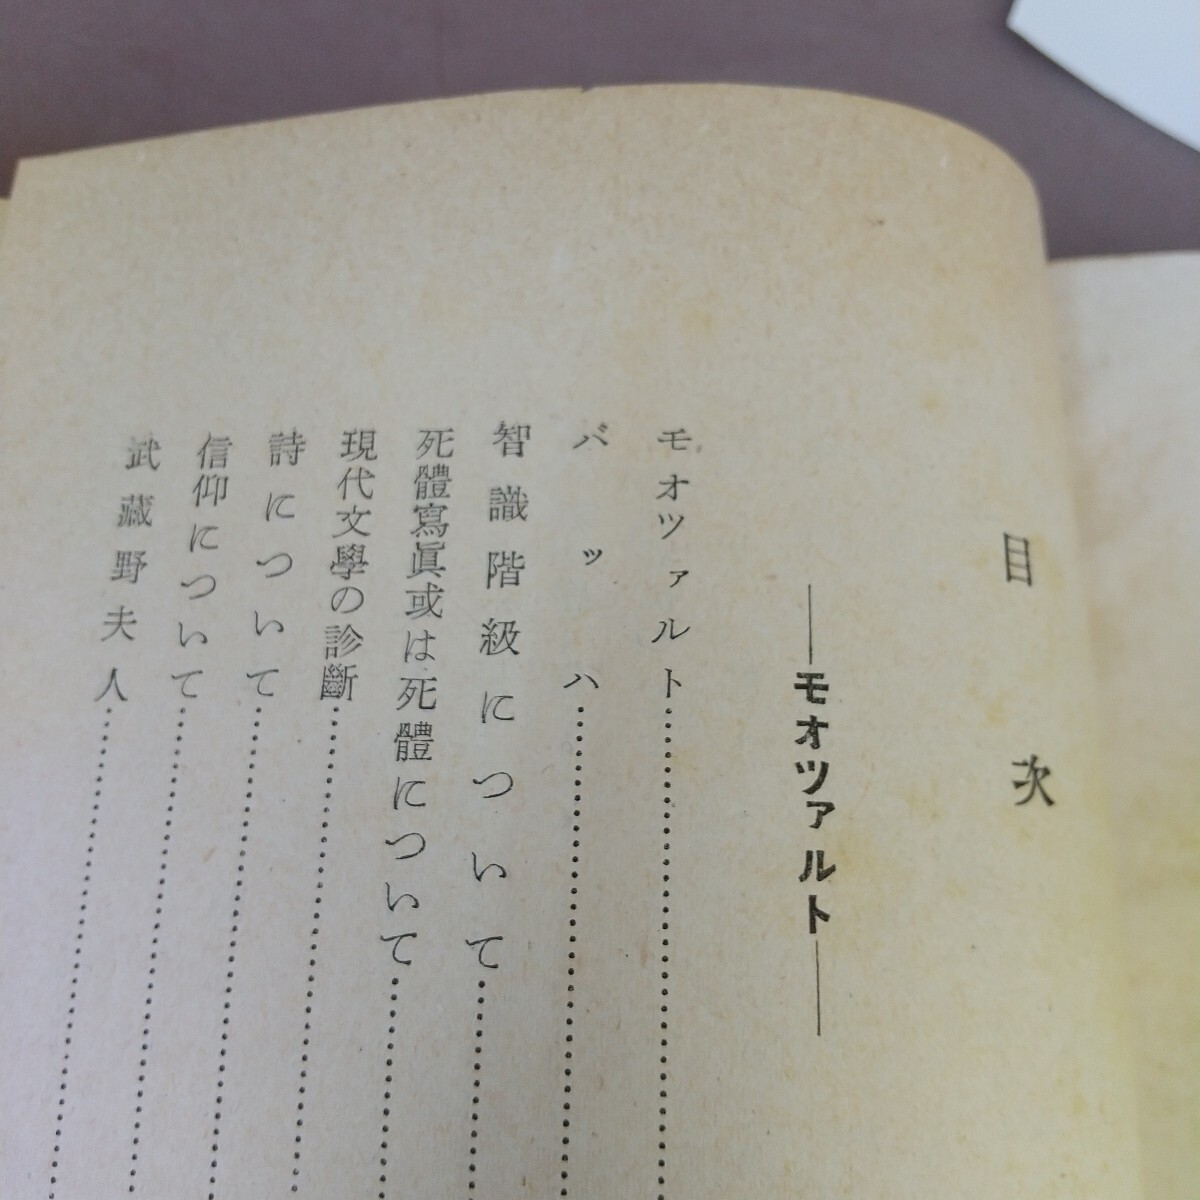 目次
―モオツァルト―
モオツァルト
バッハ
智識階級について
死體寫眞或は死體について
現代文學の診斷
詩について
信仰について
武藏野夫人